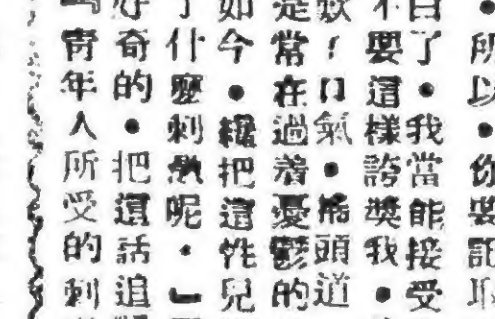 •所以•你要記
白了•我當能接受
不要這樣誇獎我•
歎了口氣•搖頭道
是常在過着憂鬱的
如今•纔把這性兒
了什麼刺激呢•」
好奇的•把這話追
青年人所受的刺